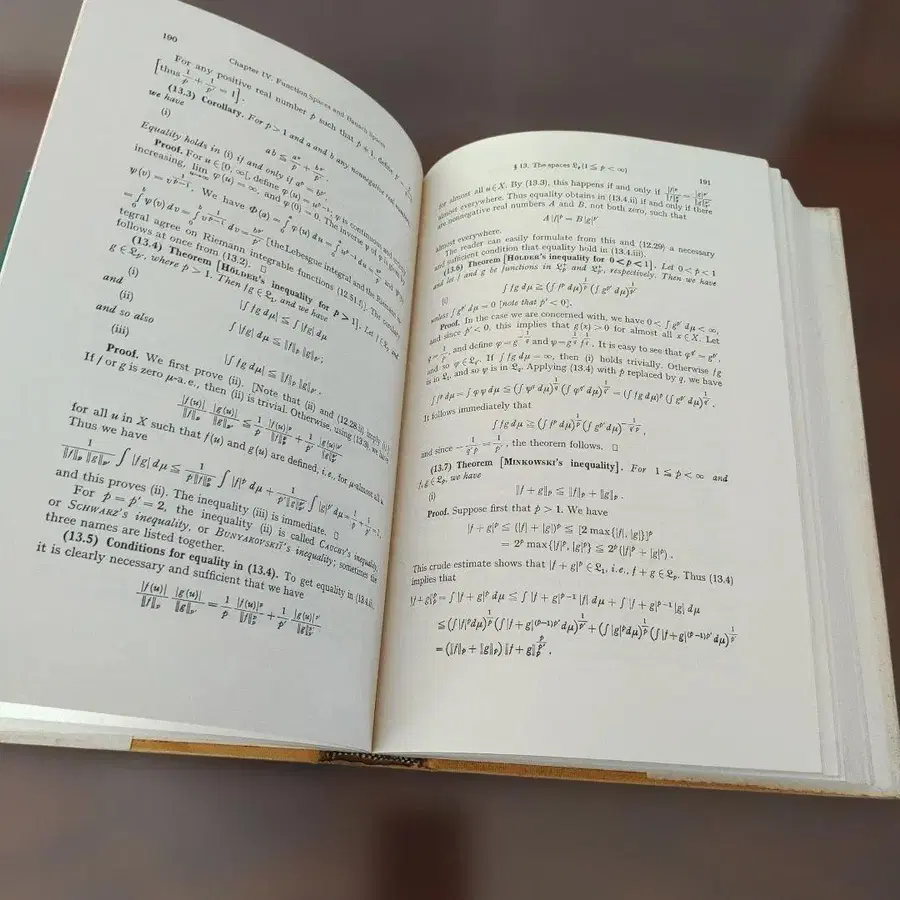 190
Chapter IV. Function Spaces and Banach Spaces
For any positive real number p such that p ≠ 1, define p′ =
[thus 1/p + 1/p′ = 1].
(13.3) Corollary. For p > 1 and a and b any nonnegative real numbers,
we have
(i)
ab ≦ a^p/p + b^p′/p′.
Equality holds in (i) if and only if a^p = b^p′.
Proof. For u ∈ [0, ∞[, define φ(u) = u^(p−1). φ is continuous and strictly
increasing, lim_{u→∞} φ(u) = ∞, and φ(0) = 0. The inverse of φ is given by
ψ(v) = v^(1/(p−1)). We have Φ(a) = ∫₀^a φ(u) du = ∫₀^a u^(p−1) du = a^p/p and Ψ(b)
= ∫₀^b ψ(v) dv = ∫₀^b v^(1/(p−1)) dv = b^p′/p′ [the Lebesgue integral and the Riemann in-
tegral agree on Riemann integrable functions (12.51.f)]. The corollary
follows at once from (13.2). □
(13.4) Theorem [HÖLDER's inequality for p > 1]. Let f ∈ 𝔏_p and
g ∈ 𝔏_p′, where p > 1. Then fg ∈ 𝔏₁, and we have
(i)
|∫ fg dμ| ≦ ∫ |fg| dμ
and
(ii)
∫ |fg| dμ ≦ ‖f‖_p ‖g‖_p′;
and so also
(iii)
|∫ fg dμ| ≦ ‖f‖_p ‖g‖_p′.
Proof. We first prove (ii). [Note that (ii) and (12.28.ii) imply (iii).]
If f or g is zero μ-a.e., then (ii) is trivial. Otherwise, using (13.3), we have
|f(u)|/‖f‖_p · |g(u)|/‖g‖_p′ ≦ 1/p · |f(u)|^p/‖f‖_p^p + 1/p′ · |g(u)|^p′/‖g‖_p′^p′
for all u in X such that f(u) and g(u) are defined, i.e., for μ-almost all u.
Thus we have
1/(‖f‖_p ‖g‖_p′) ∫ |fg| dμ ≦ 1/(p‖f‖_p^p) ∫ |f|^p dμ + 1/(p′‖g‖_p′^p′) ∫ |g|^p′ dμ = 1/p + 1/p′ = 1,
and this proves (ii). The inequality (iii) is immediate. □
For p = p′ = 2, the inequality (ii) is called CAUCHY's inequality,
or SCHWARZ's inequality, or BUNYAKOVSKIĬ's inequality; sometimes the
three names are listed together.
(13.5) Conditions for equality in (13.4). To get equality in (13.4.ii),
it is clearly necessary and sufficient that we have
|f(u)|/‖f‖_p · |g(u)|/‖g‖_p′ = 1/p · |f(u)|^p/‖f‖_p^p + 1/p′ · |g(u)|^p′/‖g‖_p′^p′
§ 13. The spaces 𝔏_p (1 ≦ p < ∞)
191
for almost all u ∈ X. By (13.3), this happens if and only if |f|^p/‖f‖_p^p = |g|^p′/‖g‖_p′^p′
almost everywhere. Thus equality obtains in (13.4.ii) if and only if there
are nonnegative real numbers A and B, not both zero, such that
A|f|^p = B|g|^p′
almost everywhere.
The reader can easily formulate from this and (12.29) a necessary
and sufficient condition that equality hold in (13.4.iii).
(13.6) Theorem [HÖLDER's inequality for 0 < p < 1]. Let 0 < p < 1
and let f and g be functions in 𝔏_p^+ and 𝔏_p′^+, respectively. Then we have
(i)
∫ fg dμ ≧ (∫ f^p dμ)^(1/p) (∫ g^p′ dμ)^(1/p′)
unless ∫ g^p′ dμ = 0 [note that p′ < 0].
Proof. In the case we are concerned with, we have 0 < ∫ g^p′ dμ < ∞,
and since p′ < 0, this implies that g(x) > 0 for almost all x ∈ X. Let
q = 1/p, and define φ = g^(−1/q) and ψ = g^(1/q) f^(1/q). It is easy to see that φ^q′ = g^p′,
and so φ ∈ 𝔏_q′. If ∫ fg dμ = ∞, then (i) holds trivially. Otherwise fg
is in 𝔏₁, and so ψ is in 𝔏_q. Applying (13.4) with p replaced by q, we have
∫ f^p dμ = ∫ φψ dμ ≦ (∫ ψ^q dμ)^(1/q) (∫ φ^q′ dμ)^(1/q′) = (∫ fg dμ)^p (∫ g^p′ dμ)^(1/q′).
It follows immediately that
∫ fg dμ ≧ (∫ f^p dμ)^(1/p) (∫ g^p′ dμ)^(−1/(q′p)),
and since −1/(q′p) = 1/p′, the theorem follows. □
(13.7) Theorem [MINKOWSKI's inequality]. For 1 ≦ p < ∞ and
f, g ∈ 𝔏_p, we have
(i)
‖f + g‖_p ≦ ‖f‖_p + ‖g‖_p.
Proof. Suppose first that p > 1. We have
|f + g|^p ≦ (|f| + |g|)^p ≦ [2 max{|f|, |g|}]^p
= 2^p max{|f|^p, |g|^p} ≦ 2^p(|f|^p + |g|^p).
This crude estimate shows that |f + g|^p ∈ 𝔏₁, i.e., f + g ∈ 𝔏_p. Thus (13.4)
implies that
‖f + g‖_p^p = ∫ |f + g|^p dμ ≦ ∫ |f + g|^(p−1) |f| dμ + ∫ |f + g|^(p−1) |g| dμ
≦ (∫ |f|^p dμ)^(1/p) (∫ |f + g|^((p−1)p′) dμ)^(1/p′) + (∫ |g|^p dμ)^(1/p) (∫ |f + g|^((p−1)p′) dμ)^(1/p′)
= (‖f‖_p + ‖g‖_p) ‖f + g‖_p^(p/p′).